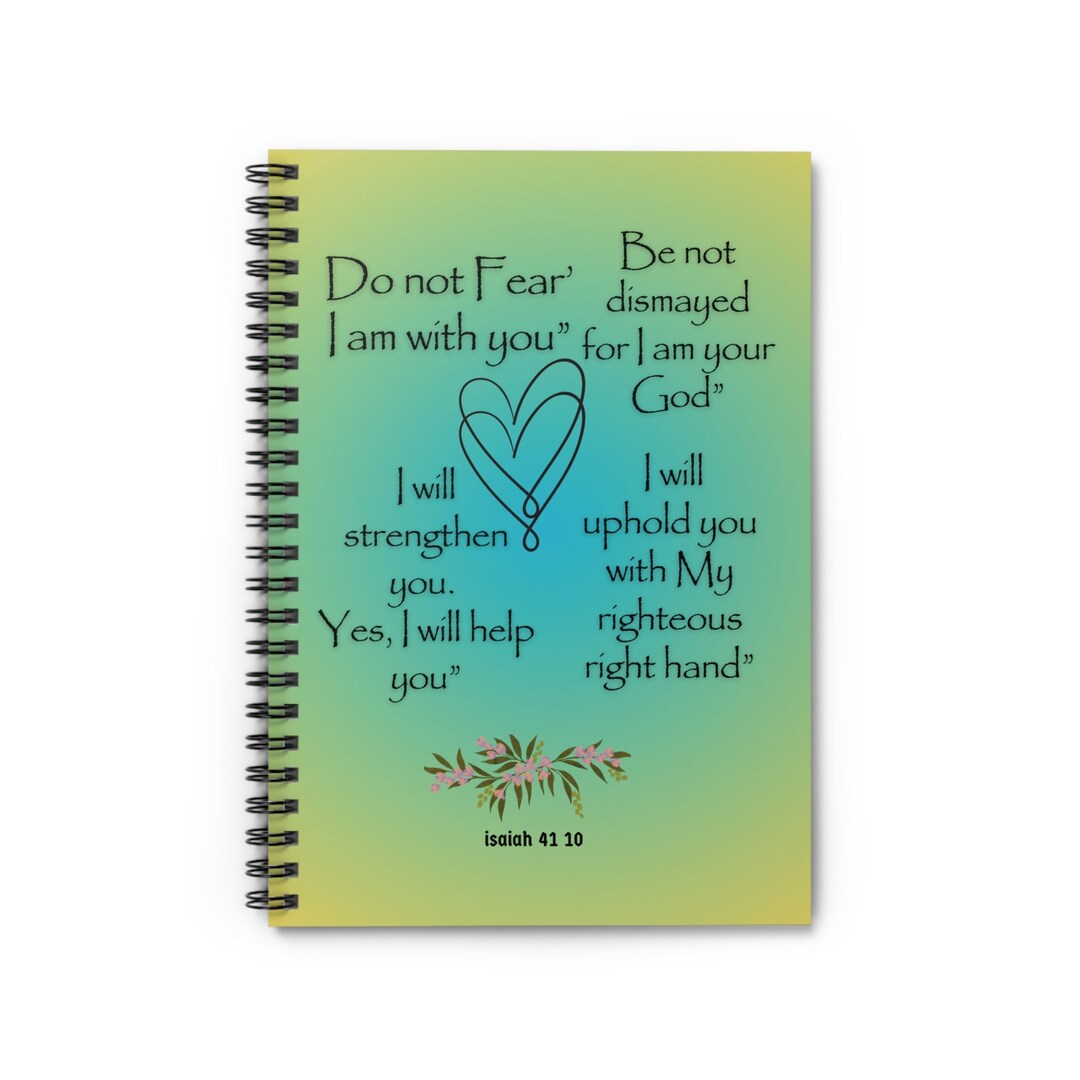 Do not Fear’
I am with you”
Be not
dismayed
for I am your
God”
I will
strengthen
you.
Yes, I will help
you”
I will
uphold you
with My
righteous
right hand”
isaiah 41 10